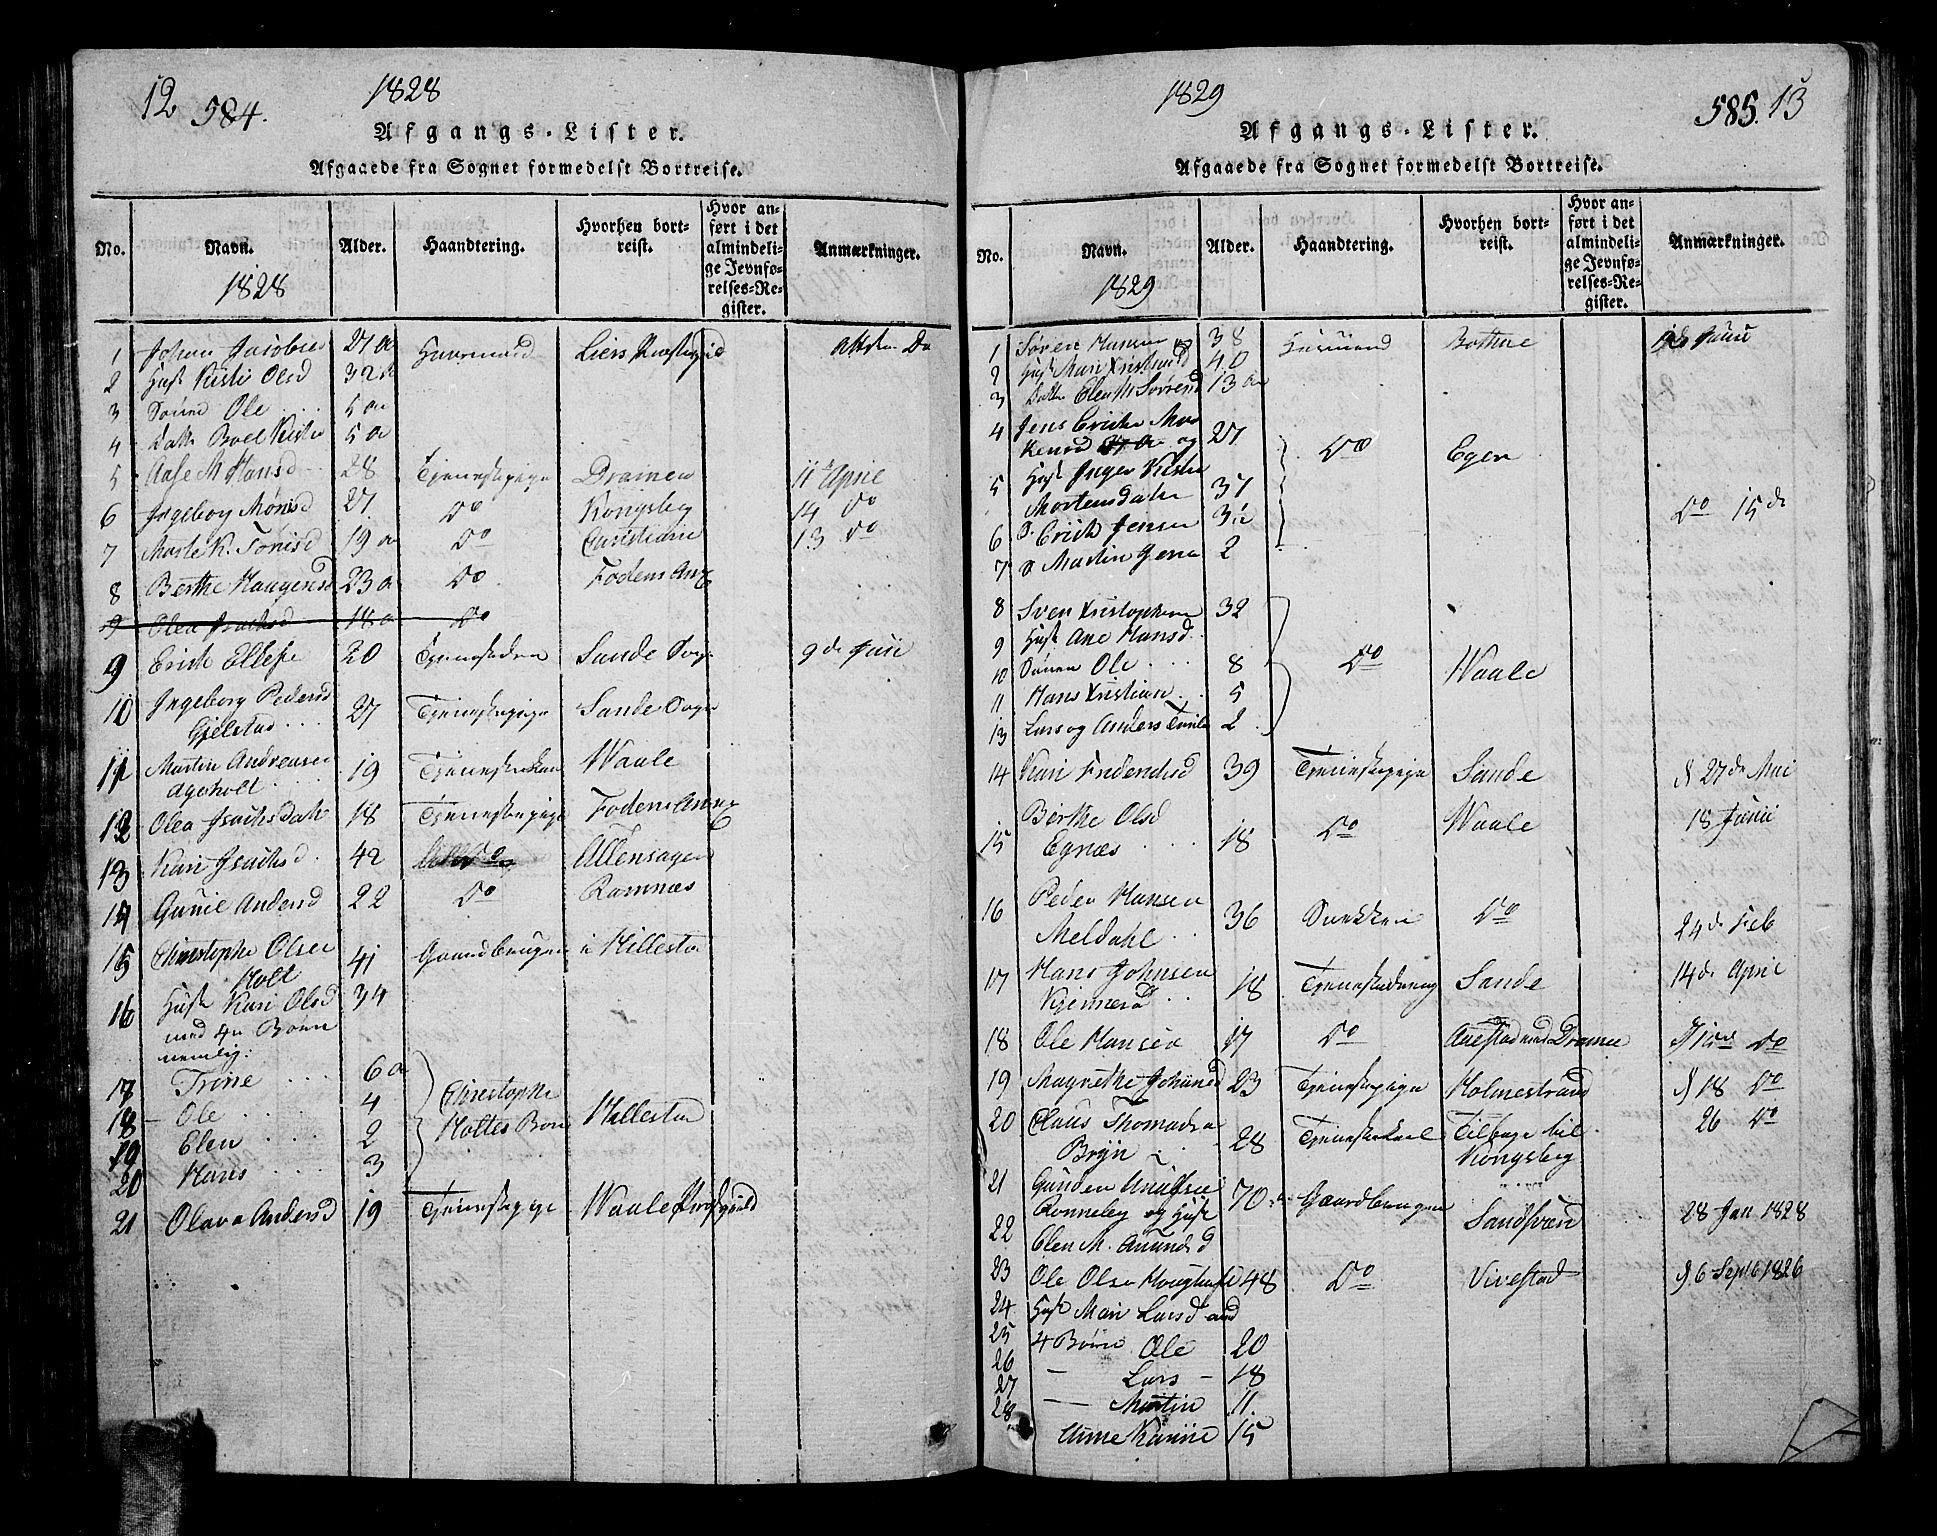 12 584. 1828
Afgangs-Lister.
Afgaaede fra Sognet formedelst Bortreise.
No. Navn. Alder. Haandtering. Hvorhen bortreist. Hvor anført i det almindelige Jevnførelses-Register. Anmærkninger.
1828
1 Johan Jacobsen 27 a Huusmand Liers Præstegield
2 Hust Kisti Olsd 32 a
3 Sønnen Ole 5 a
4 Datt Boel Kistin 5 a
5 Aase M Hansd 28 Tjenestepige Dramen 11 April
6 Ingeborg 27 Do Kongsberg 14 Do
7 Marte K. 19 a Do Christiania 13 Do
8 Berthe Haagensd 23 a Do Fodens Anex
9 Olea Isachsd 18 a Do
9 Erich Ellefse 20 Sande Sogn 9de Juli
10 Ingeborg Pedersd
Gjelstad 27 Tjenestepige Sande Sogn
11 Martin Andreasen
Ageholt 19 Tjenestekarl Waale
12 Olea Isachsdatt 18 Tjenestepige Fodens Annex
13 Kari Isachsd 42 Do
14 Gunil Andersd 22 Do Ramnæs
15 Christopher Olsen
Holt 41 Gaardbruger i Hillestad
16 Hust Kari Olsd 34
med 4re Børn
nemlig:
17 Trine 6 a Christopher
18 — Ole 4 Holtes Børn Hillestad
19 Elen 2
20 Hans 3
21 Olava Andersd 19 Tjenestepige Waale Præstgield
1829 585. 13
Afgangs-Lister.
Afgaaede fra Sognet formedelst Bortreise.
No. Navn. Alder. Haandtering. Hvorhen bortreist. Hvor anført i det almindelige Jevnførelses-Register. Anmærkninger.
1829
1 Søren Hansen og 38 Huusmand Bothne Juni
2 Hust Mari Kristensd 40
3 Datt Elen M Sørensd 13 a
4 Jens Erichs 27 Do Eger
5 Hust Inger Kistin
Mortensdatter 37 Do 15de
6 S. Erich Jensen 3½
7 S Martin Jens 2
8 Sven Kristophersen 32
9 Hust Ane Hansd
10 Sønnen Ole 8 Do Waale
11 Hans Kristian 5
13 Lars og Anders Tvill 2
14 Kari Frederichsd 39 Tjenestepige Sande 27de Mai
15 Berthe Olsd
Egnæs 18 Do Waale 18 Juni
16 Peder Hansen
Meldahl 36 Snekker Do 24de Feb
17 Hans Johnsen
18 Tjenestedreng Sande 14de April
18 Ole Hansen 17 Do Dramen Do
19 Magrethe 23 Tjenestepige Holmestrand 18 Do
20 Claus Thomasen
Bryn 28 Tjenestekarl Tilbage til
Kongsberg 26 Do
21 Gunder
og Hust 70 Gaardbruger Sandsverd 28 Jan 1828
22 Elen M. Amundsd
23 Ole Olsen 48 Do Vivestad 6 Sept 1826
24 Hust Mari Larsd med
25 4 Børn Ole 20
26 — Lars – 18
27 — Martin 11
28 Anne Karine 15